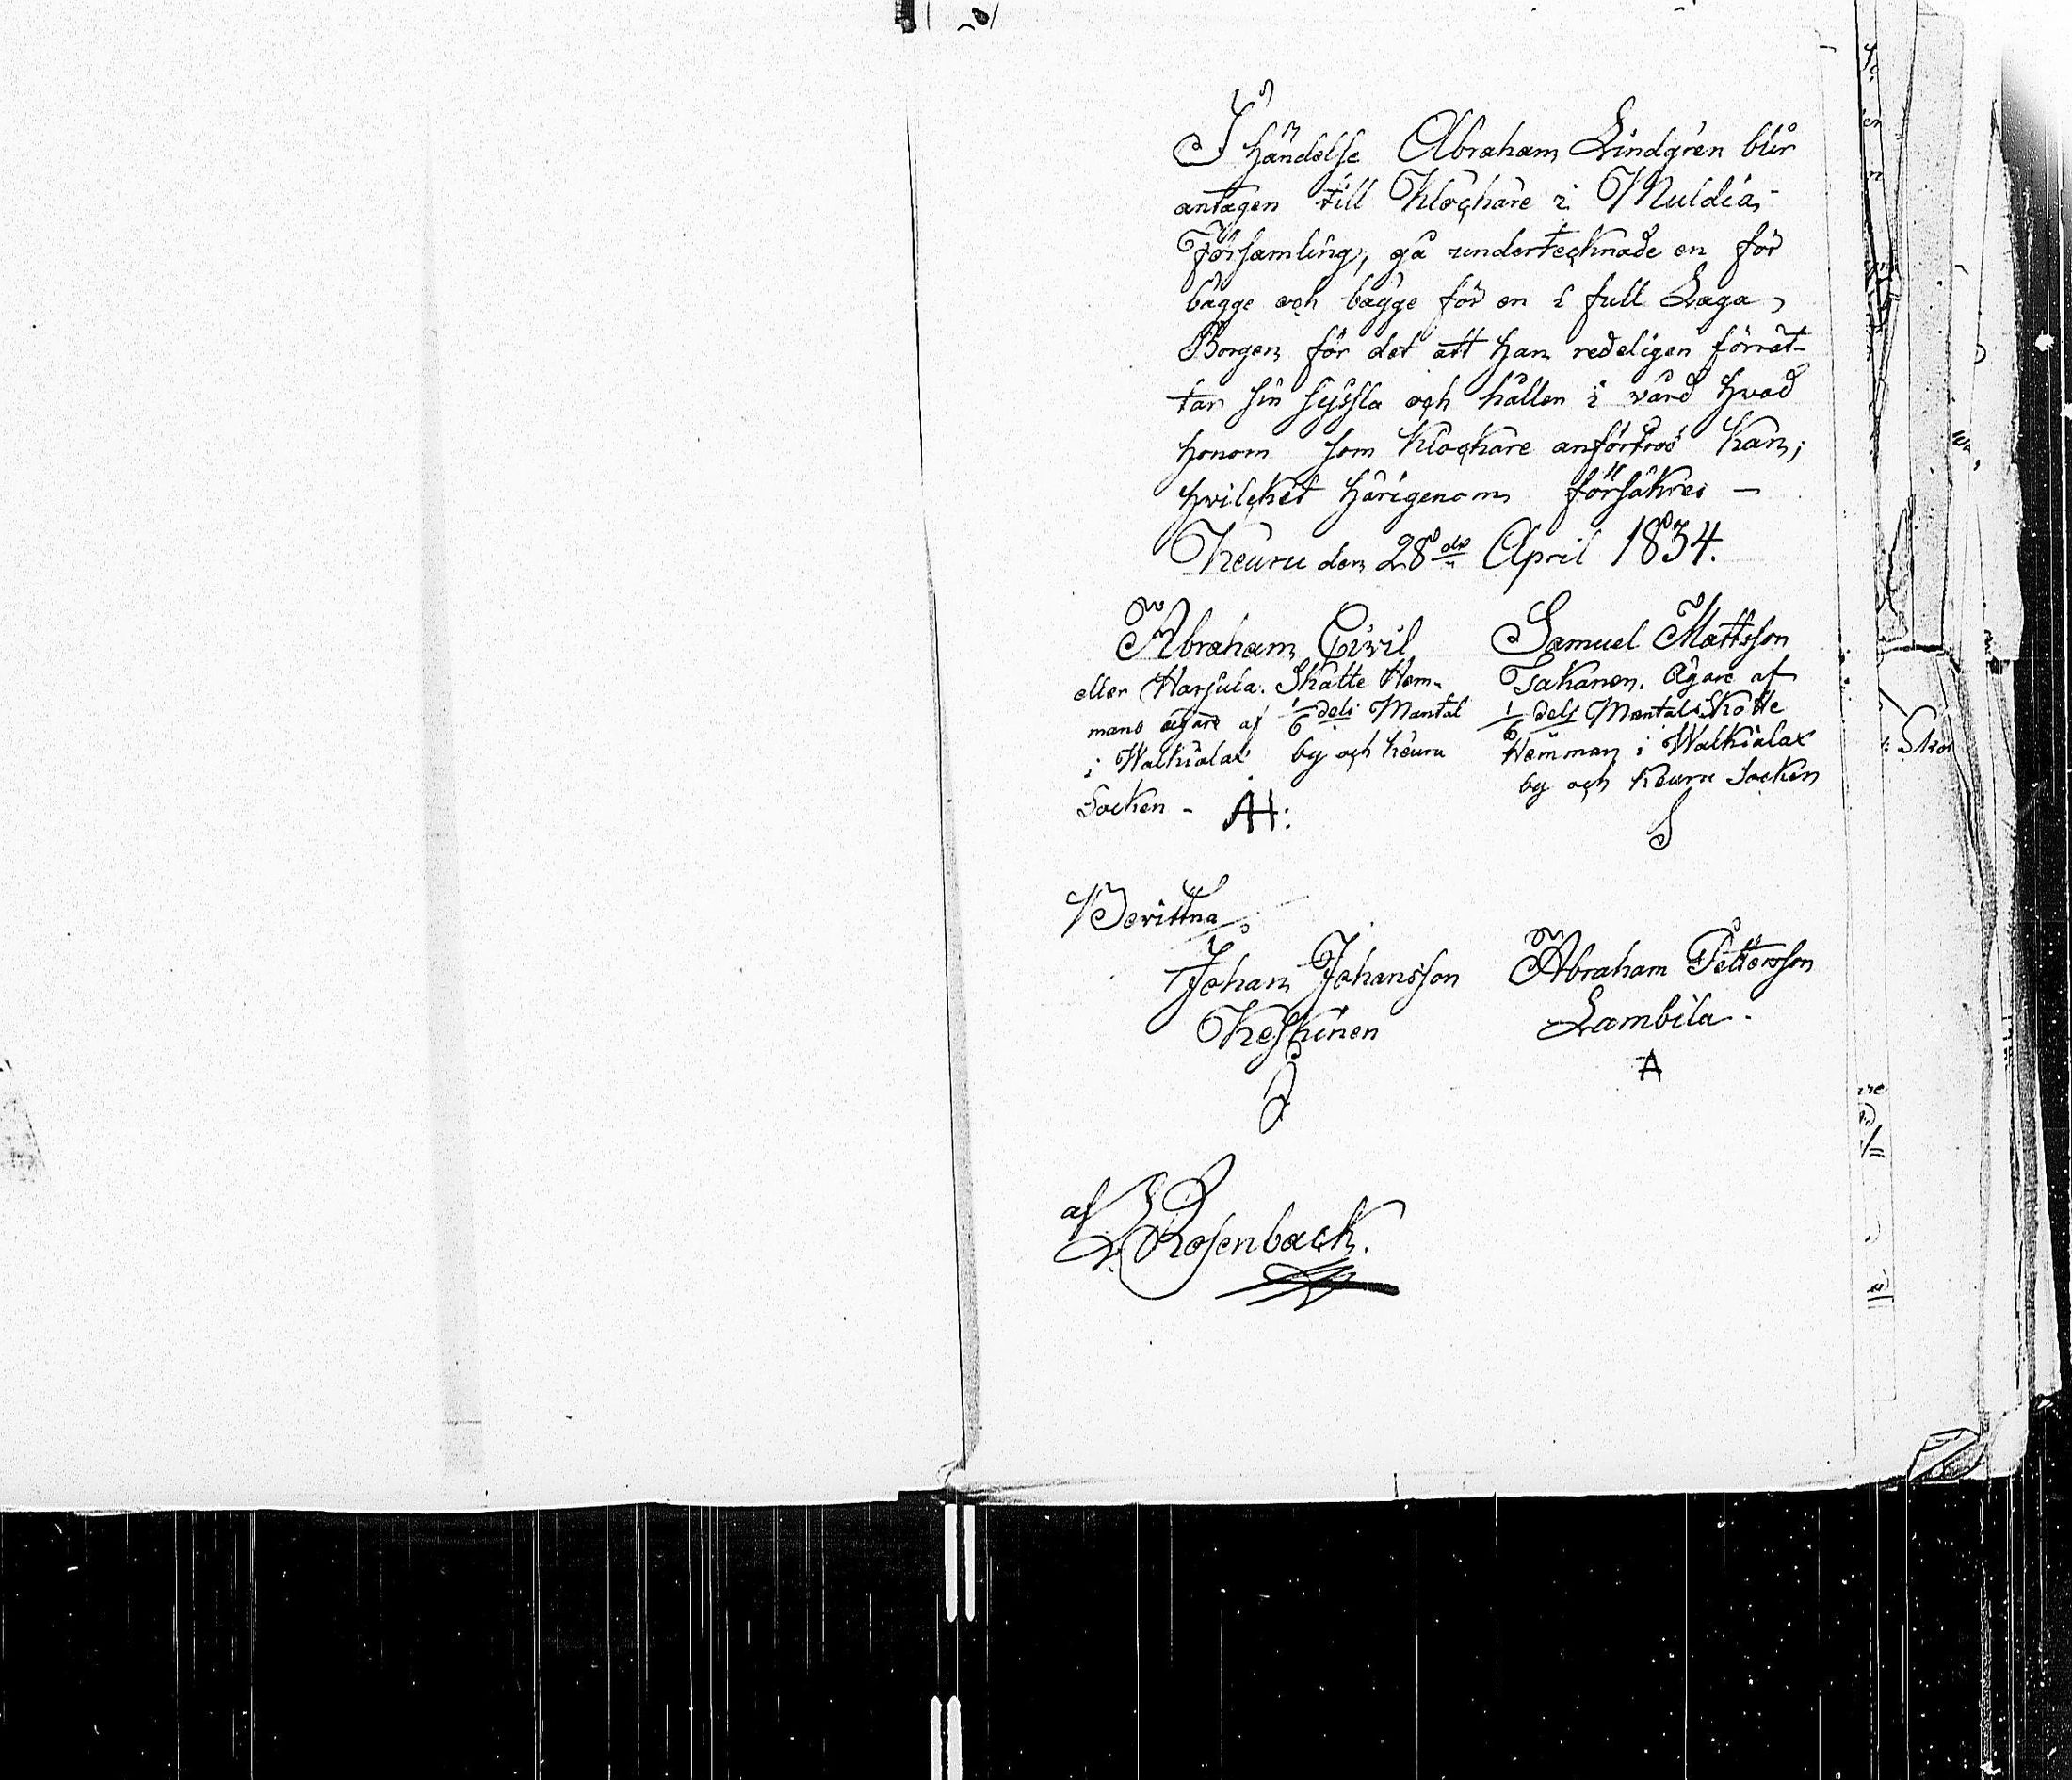 I händelse Abraham Lindgren blir
antagen till Klockare i Muldia
Församling, gå undertecknade en för
bägge och bägge för en i full Laga
Borgen för det att han redeligen förrät-
tar sin syssla och hållen i vård hwad
honom som Klockare anförtros kan;
hwilcket härigenom försäkres —
Keuru den 28de April 1834.
Abraham Civil
eller Harjula. Skatte Hem-
mans ägare af 1/6 dels Mantal
i Walkialax by och Keuru
Socken - AH:
Samuel Mattsson
Tsakanen. Ägare af
1/6 dels Mantals Skatte
Hemman i Walkialax
by och Keuru Socken
S
Bevittna:
Johan Johansson
Keskinen
J
Abraham Pettersson
Lambila.
A
af
Rosenback.